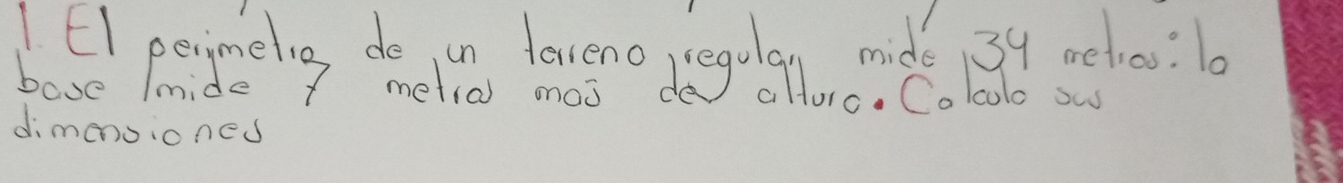 1. El perímetro de un terreno regular mide 34 metros: la
base mide 7 metros mas de altura. Calcula sus
dimensiones